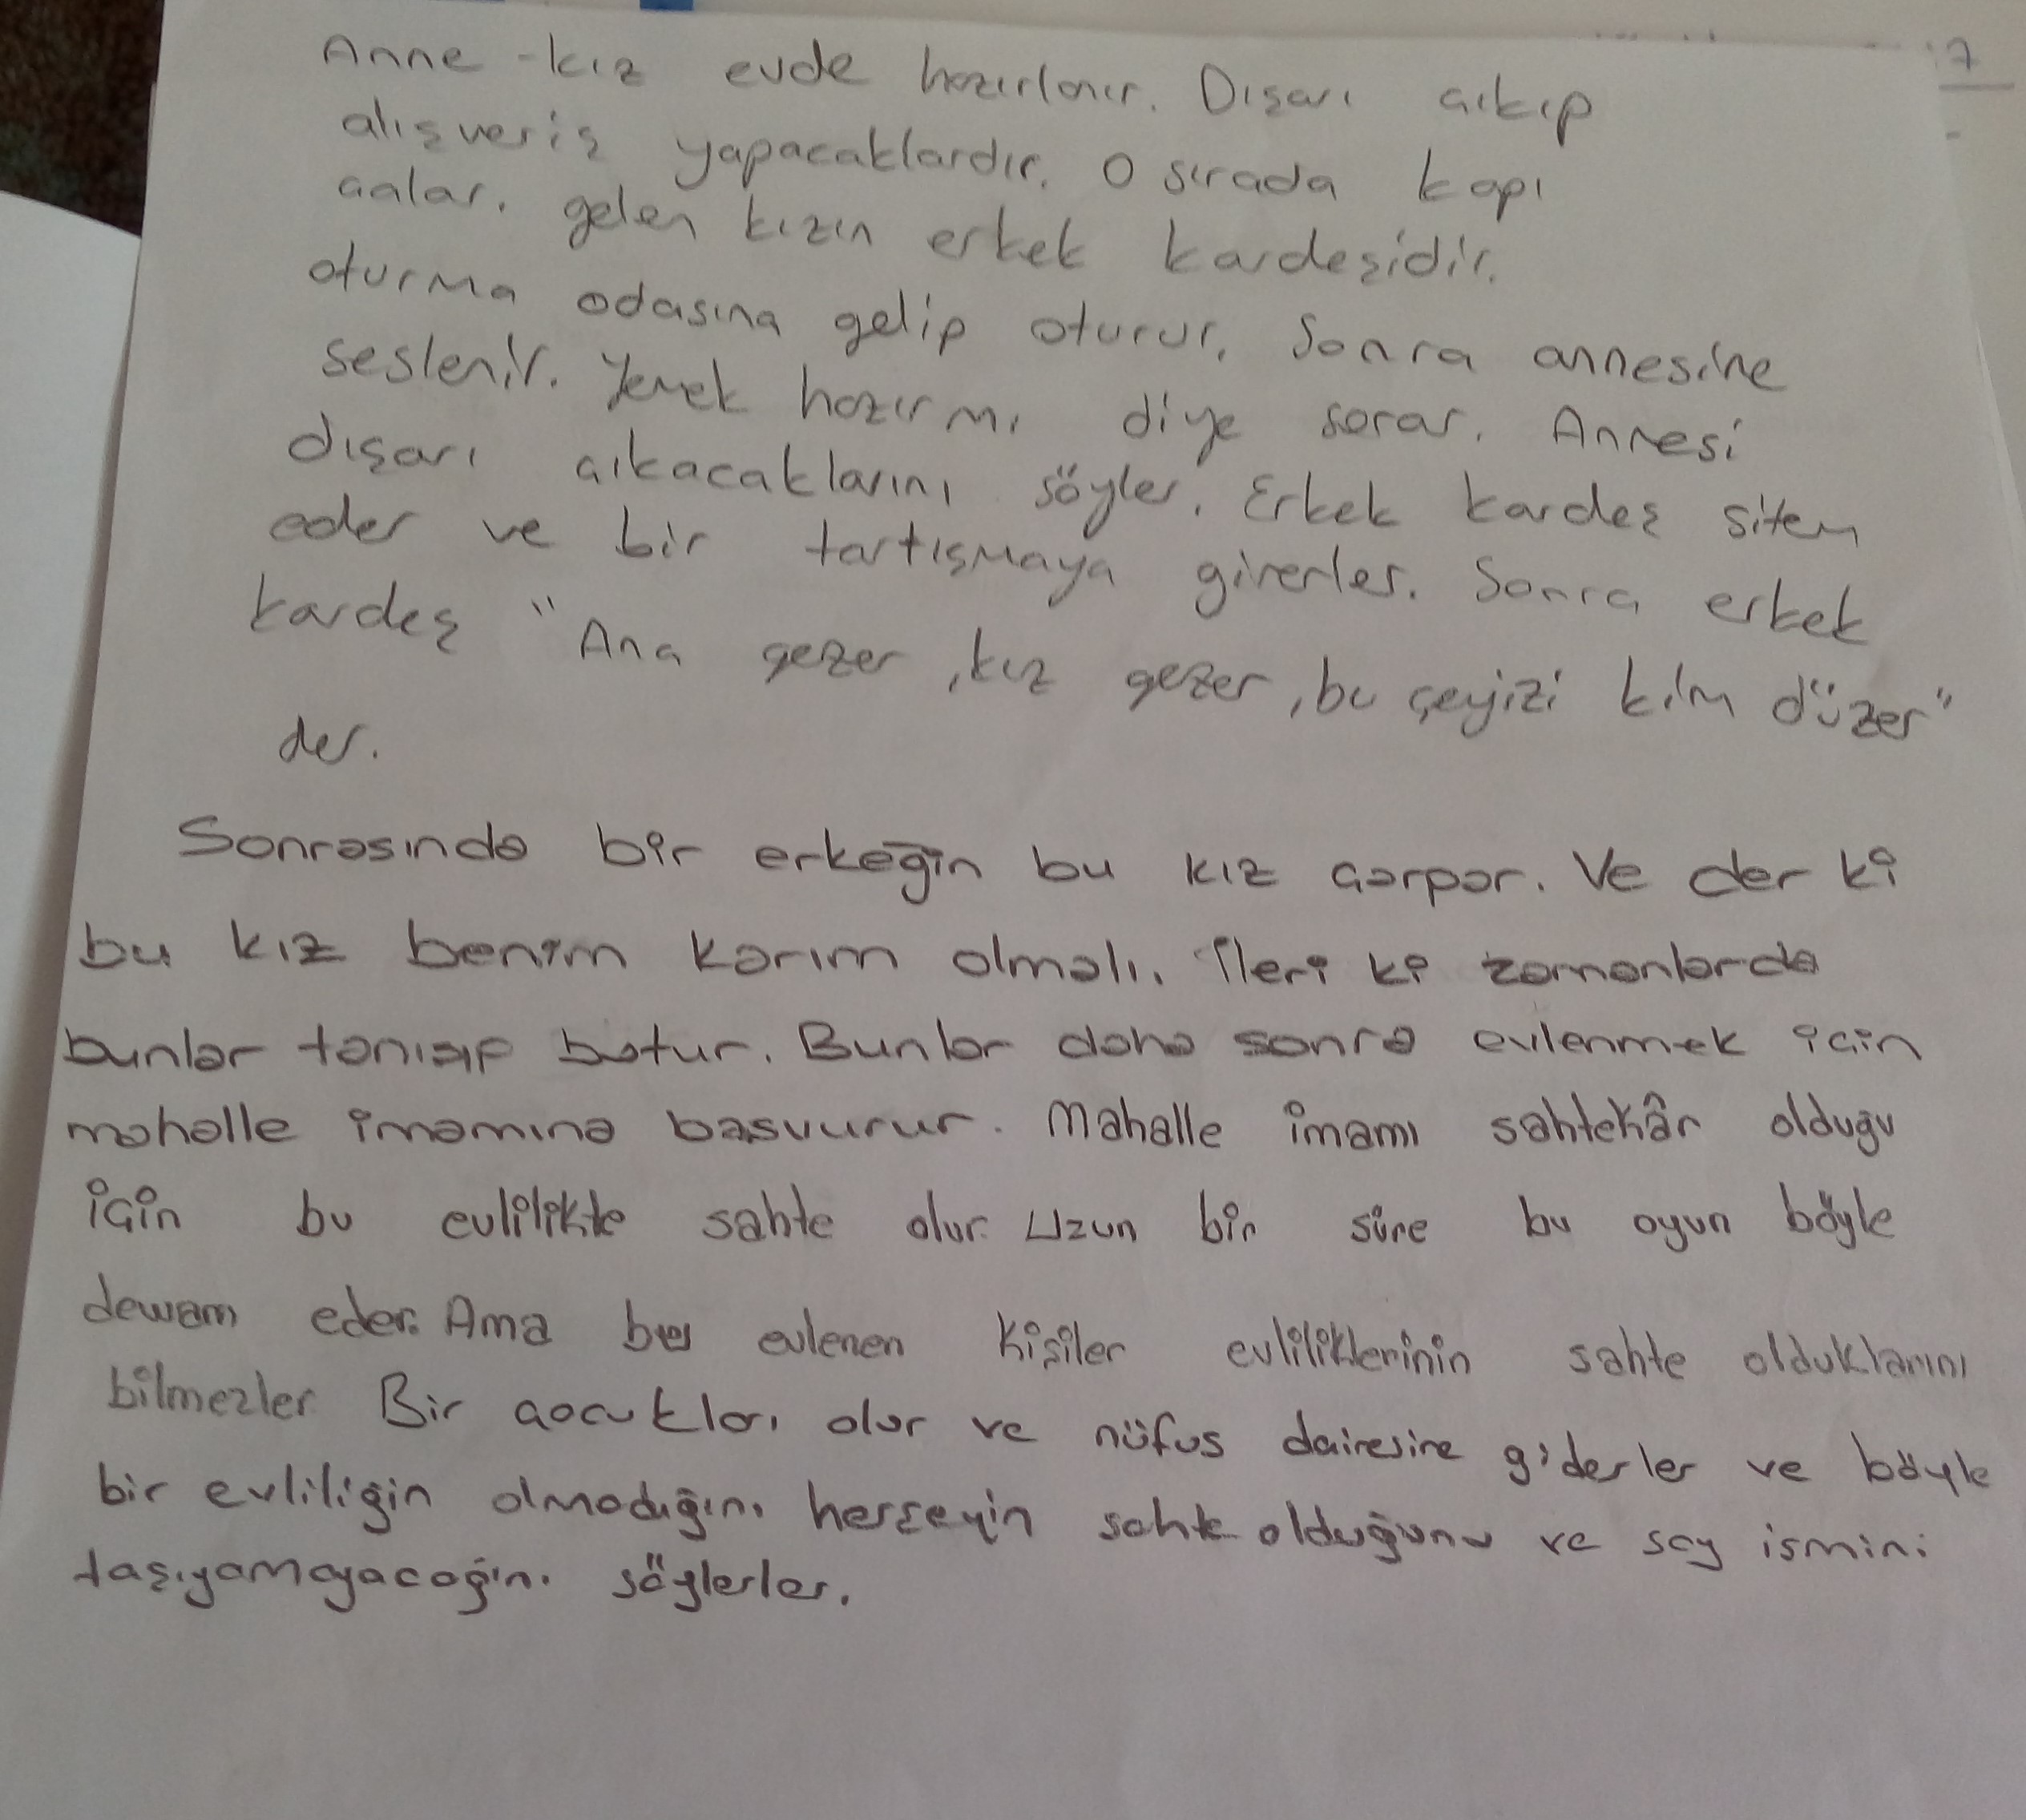 Anne-kız evde hazırlanır. Dışarı çıkıp
alışveriş yapacaklardır. O sırada kapı
çalar. gelen kızın erkek kardeşidir.
oturma odasına gelip oturur. Sonra annesine
seslenir. Yemek hazır mı diye sorar. Annesi
dışarı çıkacaklarını söyler. Erkek kardeş sitem
eder ve bir tartışmaya girerler. Sonra erkek
kardeş "Ana gezer, kız gezer, bu çeyizi kim düzer"
der.
Sonrasında bir erkeğin bu kız çarpar. Ve der ki
bu kız benim karım olmalı. İleri ki zamanlarda
bunlar tanışıp butur. Bunlar daha sonra evlenmek için
mahalle imamına başvurur. Mahalle imamı sahtekâr olduğu
için bu evlilikte sahte olur. Uzun bir süre bu oyun böyle
dewam eder. Ama bu evlenen kişiler evliliklerinin sahte olduklarını
bilmezler. Bir çocukları olur ve nüfus dairesine giderler ve böyle
bir evliliğin olmadığını herşeyin sahte olduğunu ve soy ismini
taşıyamayacağını söylerler.
7